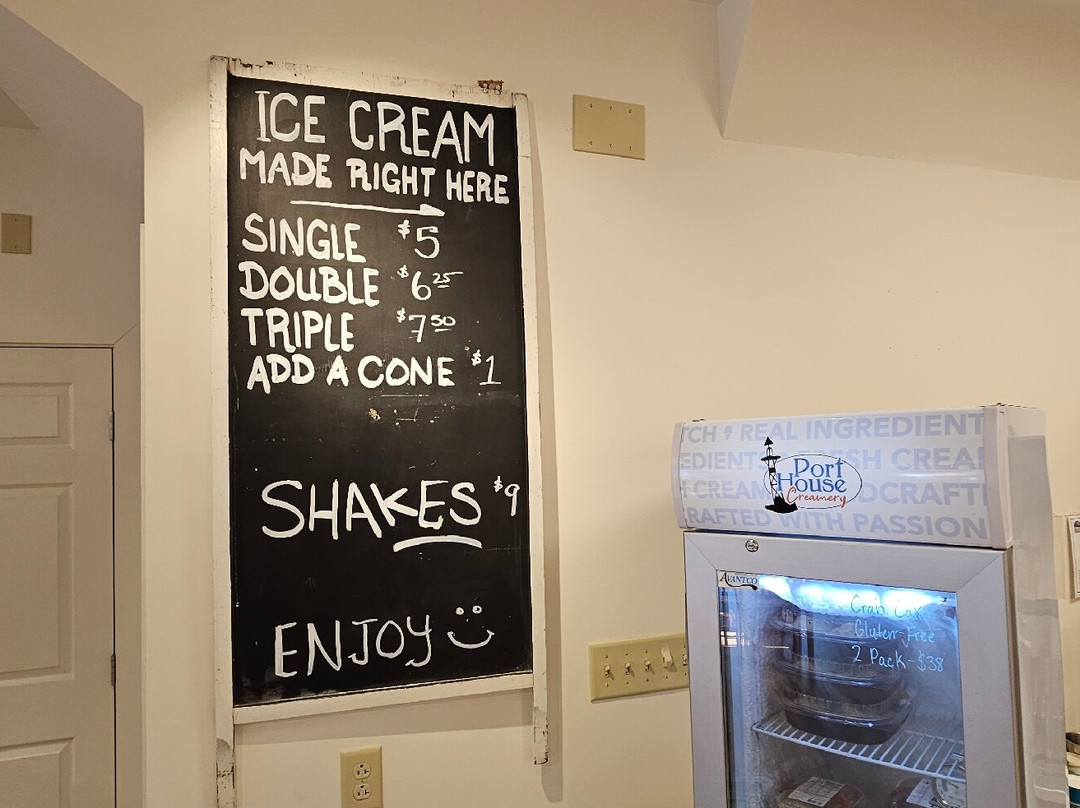 ICE CREAM
MADE RIGHT HERE
SINGLE $5
DOUBLE $6 25
TRIPLE $7 50
ADD A CONE $1
SHAKES $9
ENJOY
TCH REAL INGREDIENT
EDIENT SH CREA
CREAM DCRAFT
RAFTED WITH PASSION
Port
House
Creamery
AVANTCO
Crab Cake
Gluten-Free
2 Pack-$38